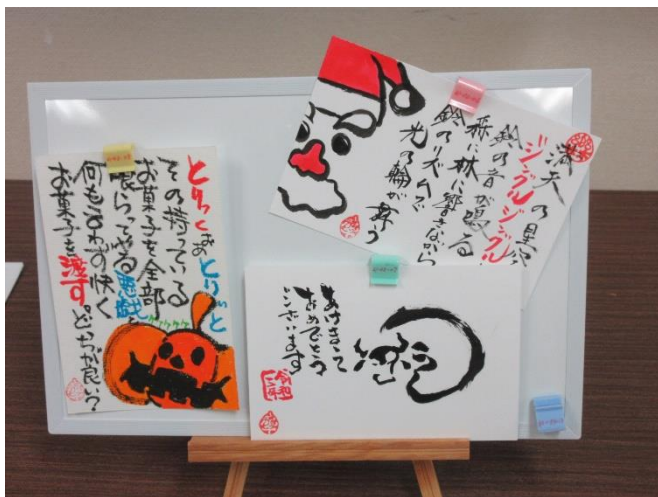 とりっくおあとりぃと
その持っている
お菓子を全部
喰らってやる悪戯と
ケケケケ
何も言わず快く
お菓子を渡す。どっちが良い?
満天の星
ジングルジングル
鈴の音が鳴る
森に林に響きながら
鈴のリズムで
光の輪が舞う
あけまして
おめでとう
ございます